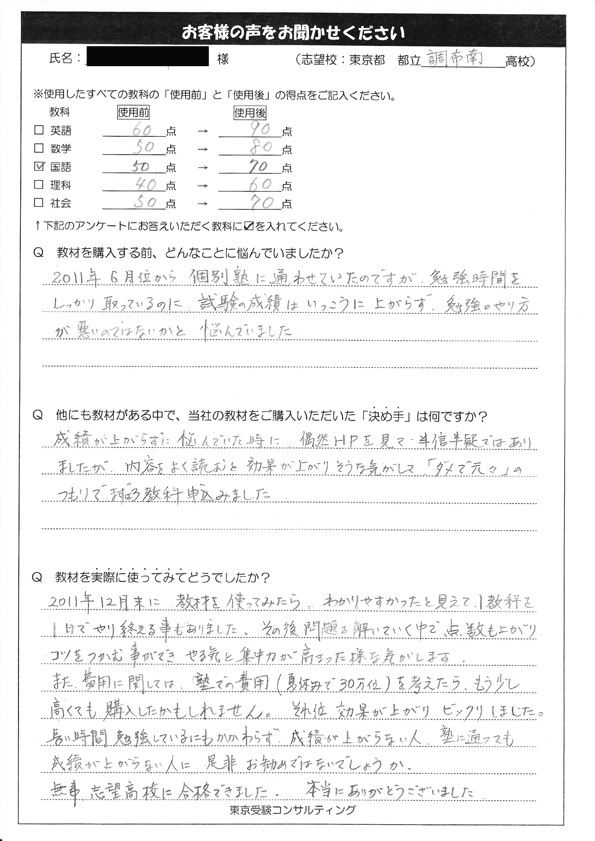 お客様の声をお聞かせください
氏名： 様 （志望校：東京都 都立 調布南 高校）
※使用したすべての教科の「使用前」と「使用後」の得点をご記入ください。
教科 使用前 使用後
□ 英語 60 点 → 90 点
□ 数学 50 点 → 80 点
☑ 国語 50 点 → 70 点
□ 理科 40 点 → 60 点
□ 社会 50 点 → 70 点
↑下記のアンケートにお答えいただく教科に☑を入れてください。
Q 教材を購入する前、どんなことに悩んでいましたか？
2011年6月位から 個別塾に通わせていたのですが、勉強時間を
しっかり取っているのに、試験の成績はいっこうに上がらず、勉強のやり方
が悪いのではないかと 悩んでいました
Q 他にも教材がある中で、当社の教材をご購入いただいた「決め手」は何ですか？
成績が上がらずに悩んでいた時に 偶然HPを見て 半信半疑ではあり
ましたが、内容をよく読むと効果が上がりそうな気がして「ダメで元々」の
つもりで まず3教科申込みました
Q 教材を実際に使ってみてどうでしたか？
2011年12月末に 教材を使ってみたら、わかりやすかったと見えて、1教科を
1日でやり終える事もありました。その後問題を解いていく中で点数も上がり
コツをつかむ事ができ やる気と集中力が高まった様な気がします。
また、費用に関しては、塾での費用（夏休みで30万位）を考えたら、もう少し
高くても購入したかもしれません。それ位 効果が上がり ビックリしました。
長い時間勉強しているにもかかわらず 成績が上がらない人、塾に通っても
成績が上がらない人に 是非お勧めではないでしょうか。
無事 志望高校に合格できました。 本当にありがとうございました
東京受験コンサルティング